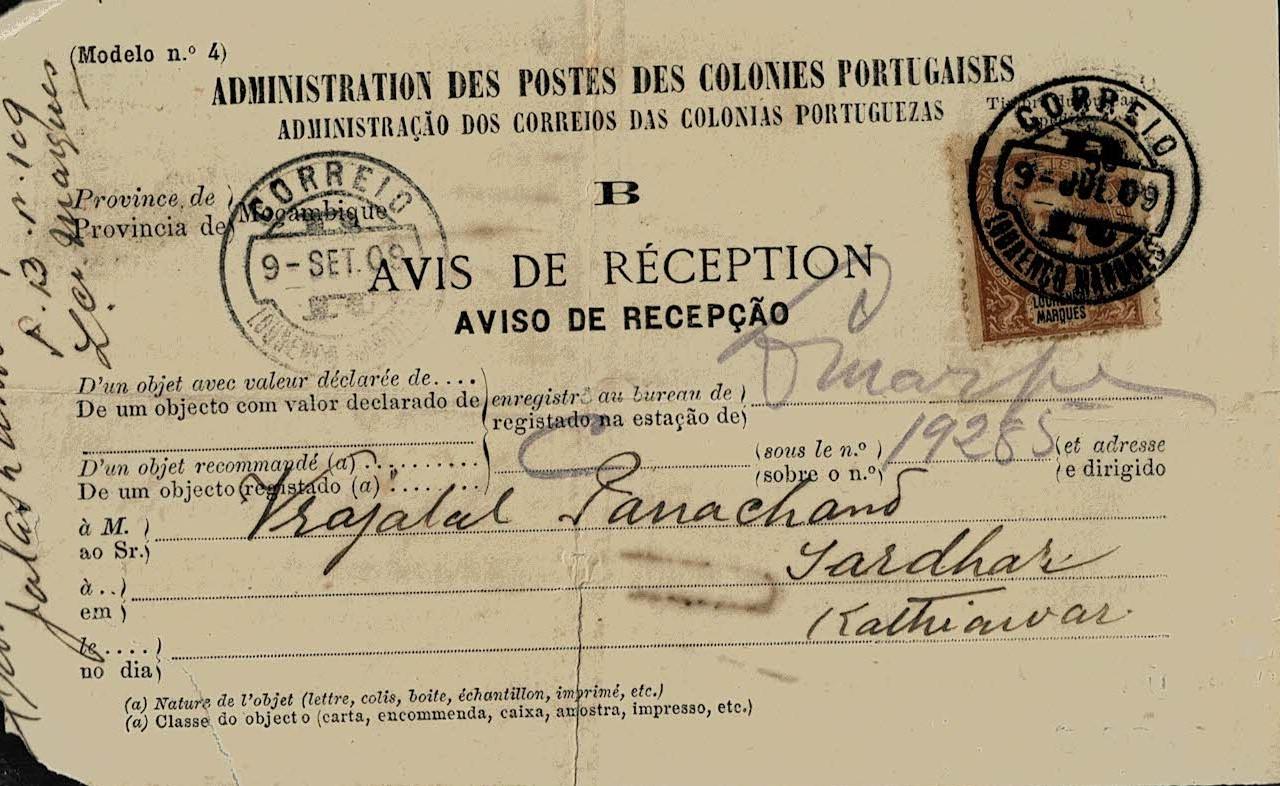 (Modelo n.º 4)
ADMINISTRATION DES POSTES DES COLONIES PORTUGAISES
ADMINISTRAÇÃO DOS CORREIOS DAS COLONIAS PORTUGUEZAS
CORREIO
9-JUL.09
LOURENÇO MARQUES
LOURENÇO
MARQUES
B
Province de
Provincia de
Moçambique
CORREIO
9-SET.09
LOURENÇO
AVIS DE RÉCEPTION
AVISO DE RECEPÇÃO
D'un objet avec valeur déclarée de....
De um objecto com valor declarado de
enregistré au bureau de
registado na estação de
L Marques
D'un objet recommandé (a)
De um objecto registado (a)
(sous le n.º)
(sobre o n.º)
19285
(et adresse
(e dirigido
à M.
ao Sr.
Vrajalal Panachand
à..)
em)
Sardhar
Kathiawar
le....)
no dia)
(a) Nature de l'objet (lettre, colis, boite, échantillon, imprimé, etc.)
(a) Classe do objecto (carta, encommenda, caixa, amostra, impresso, etc.)
P. B. n. 109
Lço. Marques